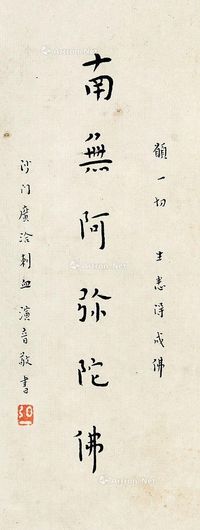 願一切 生悉得成佛
南無阿弥陀佛
沙门廣洽刺血 演音敬書